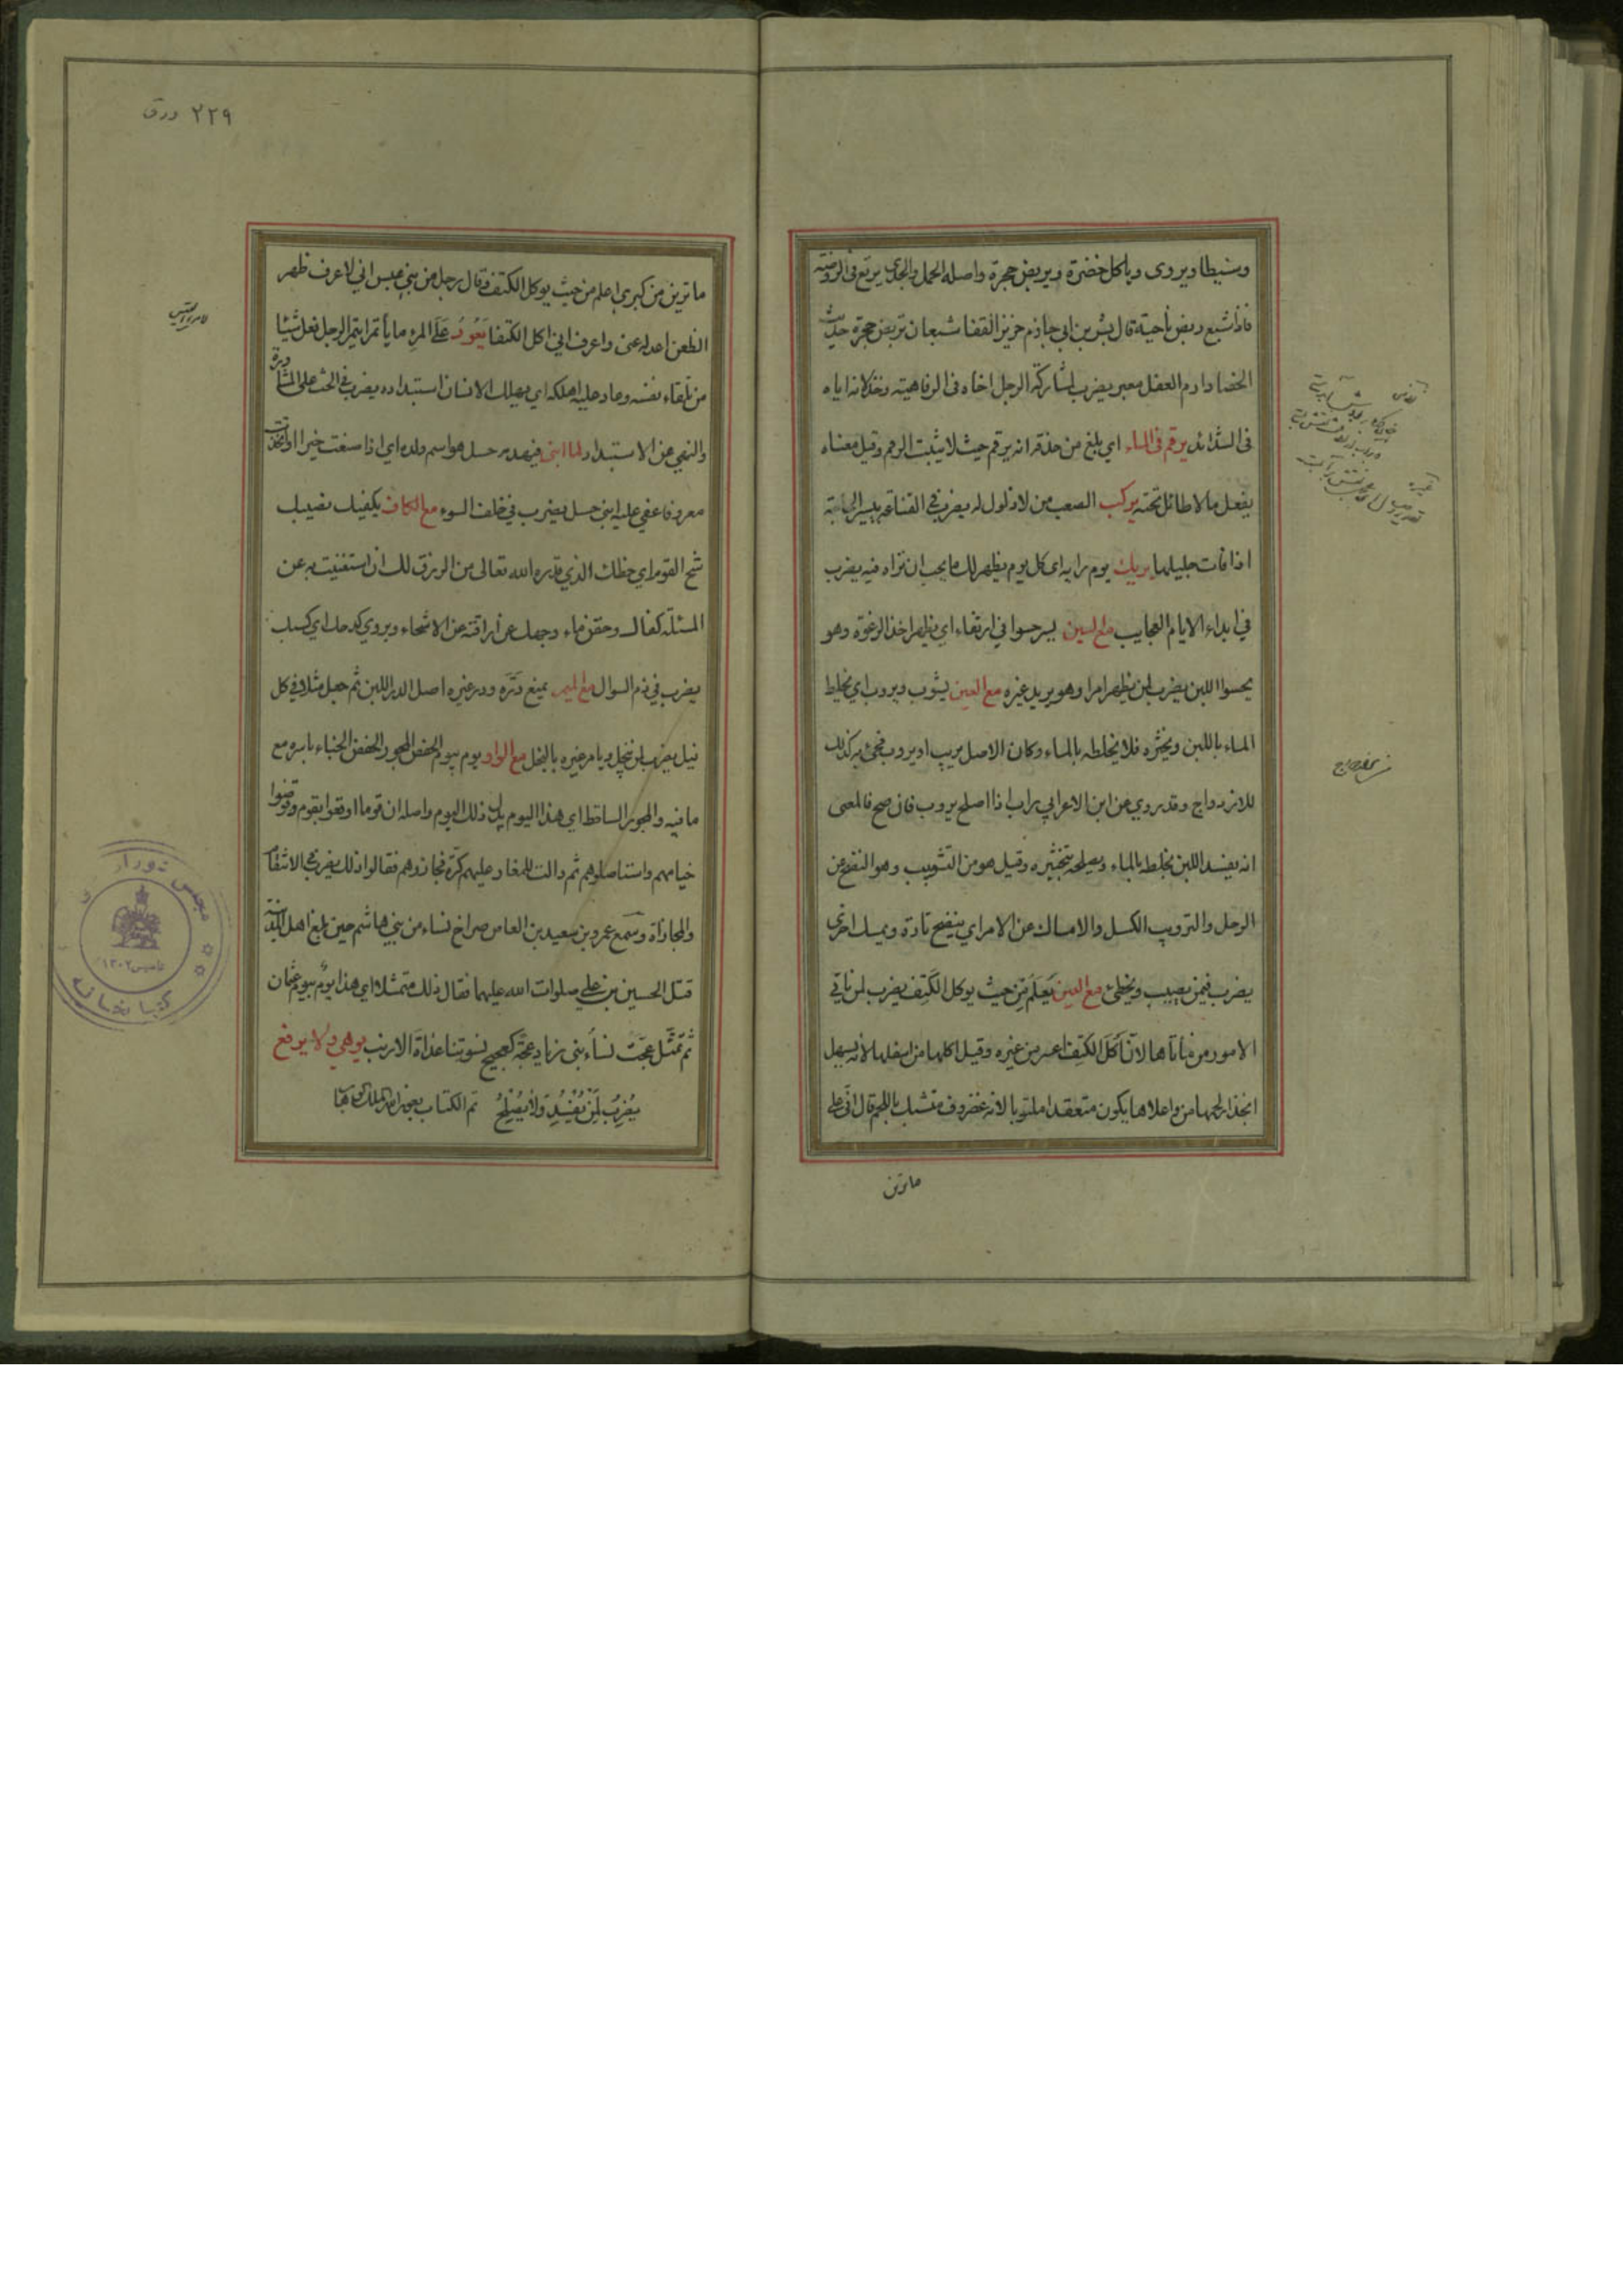 وسيطا ويروى وياكل خضرة ويربض حجرة واصله الحمل والجدى يرتع فى الروضة
فاذا شبع ربض ناحية قال بشر بن ابى حازم خزيز القفا شبعان تربض حجرة حديث
الخصا وارم العفل معبر يضرب لمشاركة الرجل اخاه فى الرفاهية وخذلانه اياه
فى الشدائد يرقم فى الماء اى بلغ من حذقه انه يرقم حيث لا يثبت الرقم وقيل معناه
يفعل مالا طائل تحته يركب الصعب من لا ذلول له يضرب فى القناعة بيسير الحاجة
اذا فات جليلها يريك يوم برايه اى كل يوم يظهر لك ما يجب ان تراه فيه يضرب
في ابداء الايام العجايب مع السين يسر حسوا في ارتغاء اي يظهر اخذ الرغوة وهو
يحسوا اللبن يضرب لمن يظهر امرا وهو يريد غيره مع الشين يشوب ويروب اي يخلط
الماء باللبن ويخثره فلا يخلطه بالماء وكان الاصل يريب او يروب فجئ به كذلك
للازدواج وقد روي عن ابن الاعرابي راب اذا اصلح يروب فان صح فالمعنى
انه يفسد اللبن بخلطه بالماء ويصلحه بتخثيره وقيل هو من التشويب وهو النضح عن
الرجل والترويب الكسل والامساك عن الامر اي ينضح تارة ويمسك اخرى
يضرب فيمن يصيب ويخطئ مع العين يعلم من حيث يوكل الكتف يضرب لمن ياتي
الامور من مأتاها لان اكل الكتف اعسر من غيره وقيل اكلها من اسفلها لانه يسهل
انجذاب لحمها من واعلاها يكون متعقدا ملتويا لانه غضروف متشبك باللحم قال اني على
ما ترين
٢٢٩ ورق
ما ترين من كبري اعلم من حيث يوكل الكتف وقال رجل من بني عبس اني لاعرف ظهر
الظعن اعدله عنى واعرف اني اكل الكتفا يعود على المرء ما يأتمر ايتمر الرجل فعل شيئا
من تلقاء نفسه وعاد عليه اهلكه اي يهلك الانسان استبداده يضرب في الحث على المشاورة
والنهي عن الاستبداد لما ابنى فيهدمه حسل هو اسم ولده اي اذا صنعت خيرا او اتخذت
معروفا عفى عليه ابني حسل يضرب في خلف السوء مع الكاف يكفيك نصيبك
شح القوم اي حظك الذي قدره الله تعالى من الرزق لك ان استغنيت به عن
المسئلة كفاك وحقن ماء وجهك عن اراقته عن الاشحاء ويروي كدحك اي كسبك
يضرب في ذم السوال مع الميم يمنع دره ودر غيره اصل الدر اللبن ثم جعل مثلا في كل
نيل يضرب لمن يبخل ويامر غيره بالبخل مع الواو يوم بيوم الحفض المجور الحفض الخباء باسره مع
ما فيه والمجور الساقط اي هذا اليوم بدل ذلك اليوم واصله ان قوما اوقعوا بقوم وقوضوا
خيامهم واستاصلوهم ثم دالت للمغار عليهم كرة فجازوهم فقالوا ذلك يضرب في الانتقام
والمجازاة وسمع عمرو بن سعيد بن العاص صراخ نساء من بني هاشم حين بلغ اهل المدينة
قتل الحسين بن علي صلوات الله عليهما فقال ذلك متمثلا اي هذا يوم بيوم عثمان
ثم تمثل عجت نساء بنى زياد عجة كعجيج نسوتنا غداة الارنب يوهي ولا يرقع
يضرب لمن يفسد ولا يصلح تم الكتاب بعون الله الملك الوهاب
مجلس شورای
کتابخانه
تاسیس ١٣٠٢